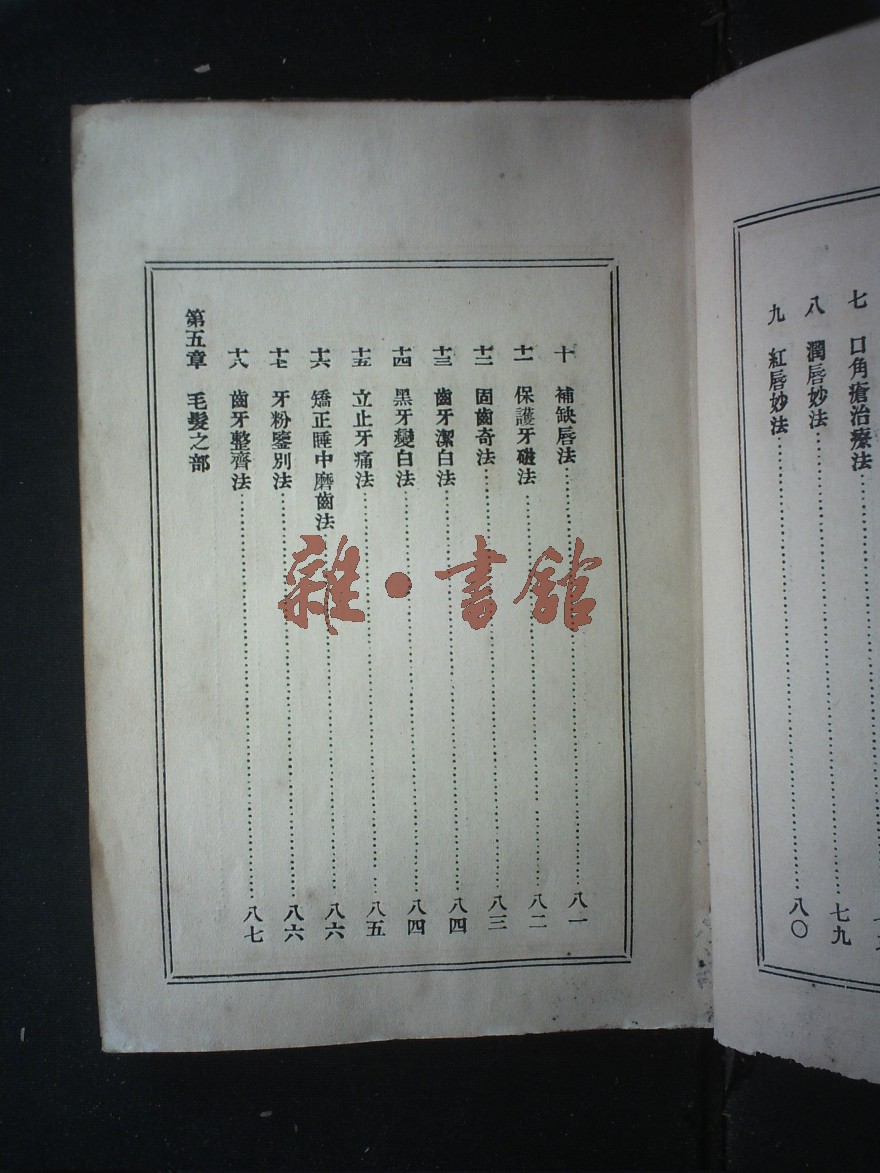 七　口角瘡治療法
八　潤唇妙法……七九
九　紅唇妙法……八〇
十　補缺唇法……八一
十一　保護牙磁法……八二
十二　固齒奇法……八三
十三　齒牙潔白法……八四
十四　黑牙變白法……八四
十五　立止牙痛法……八五
十六　矯正睡中磨齒法……八六
十七　牙粉鑒別法……八六
十八　齒牙整齊法……八七
第五章　毛髮之部
雜·書館